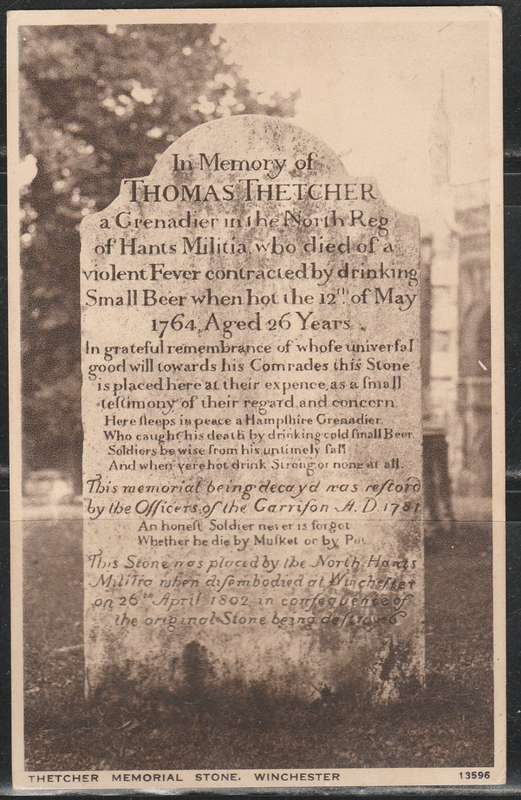 In Memory of
THOMAS THETCHER
a Grenadier in the North Reg.
of Hants Militia, who died of a
violent Fever contracted by drinking
Small Beer when hot the 12th. of May
1764, Aged 26 Years.
In grateful remembrance of whoſe univerſal
good will towards his Comrades this Stone
is placed here at their expence, as a ſmall
teſtimony of their regard and concern.
Here ſleeps in peace a Hampſhire Grenadier,
Who caught his death by drinking cold ſmall Beer.
Soldiers be wise from his untimely fall
And when yere hot drink Strong or none at all.
This memorial being decay'd was reſtor'd
by the Officers of the Garriſon A.D. 1781
An honeſt Soldier never is forgot
Whether he die by Muſket or by Pot.
This Stone was placed by the North Hants
Militia when diſembodied at Wincheſter
on 26th April 1802 in conſequence of
the original Stone being deſtroyed
THETCHER MEMORIAL STONE. WINCHESTER
13596